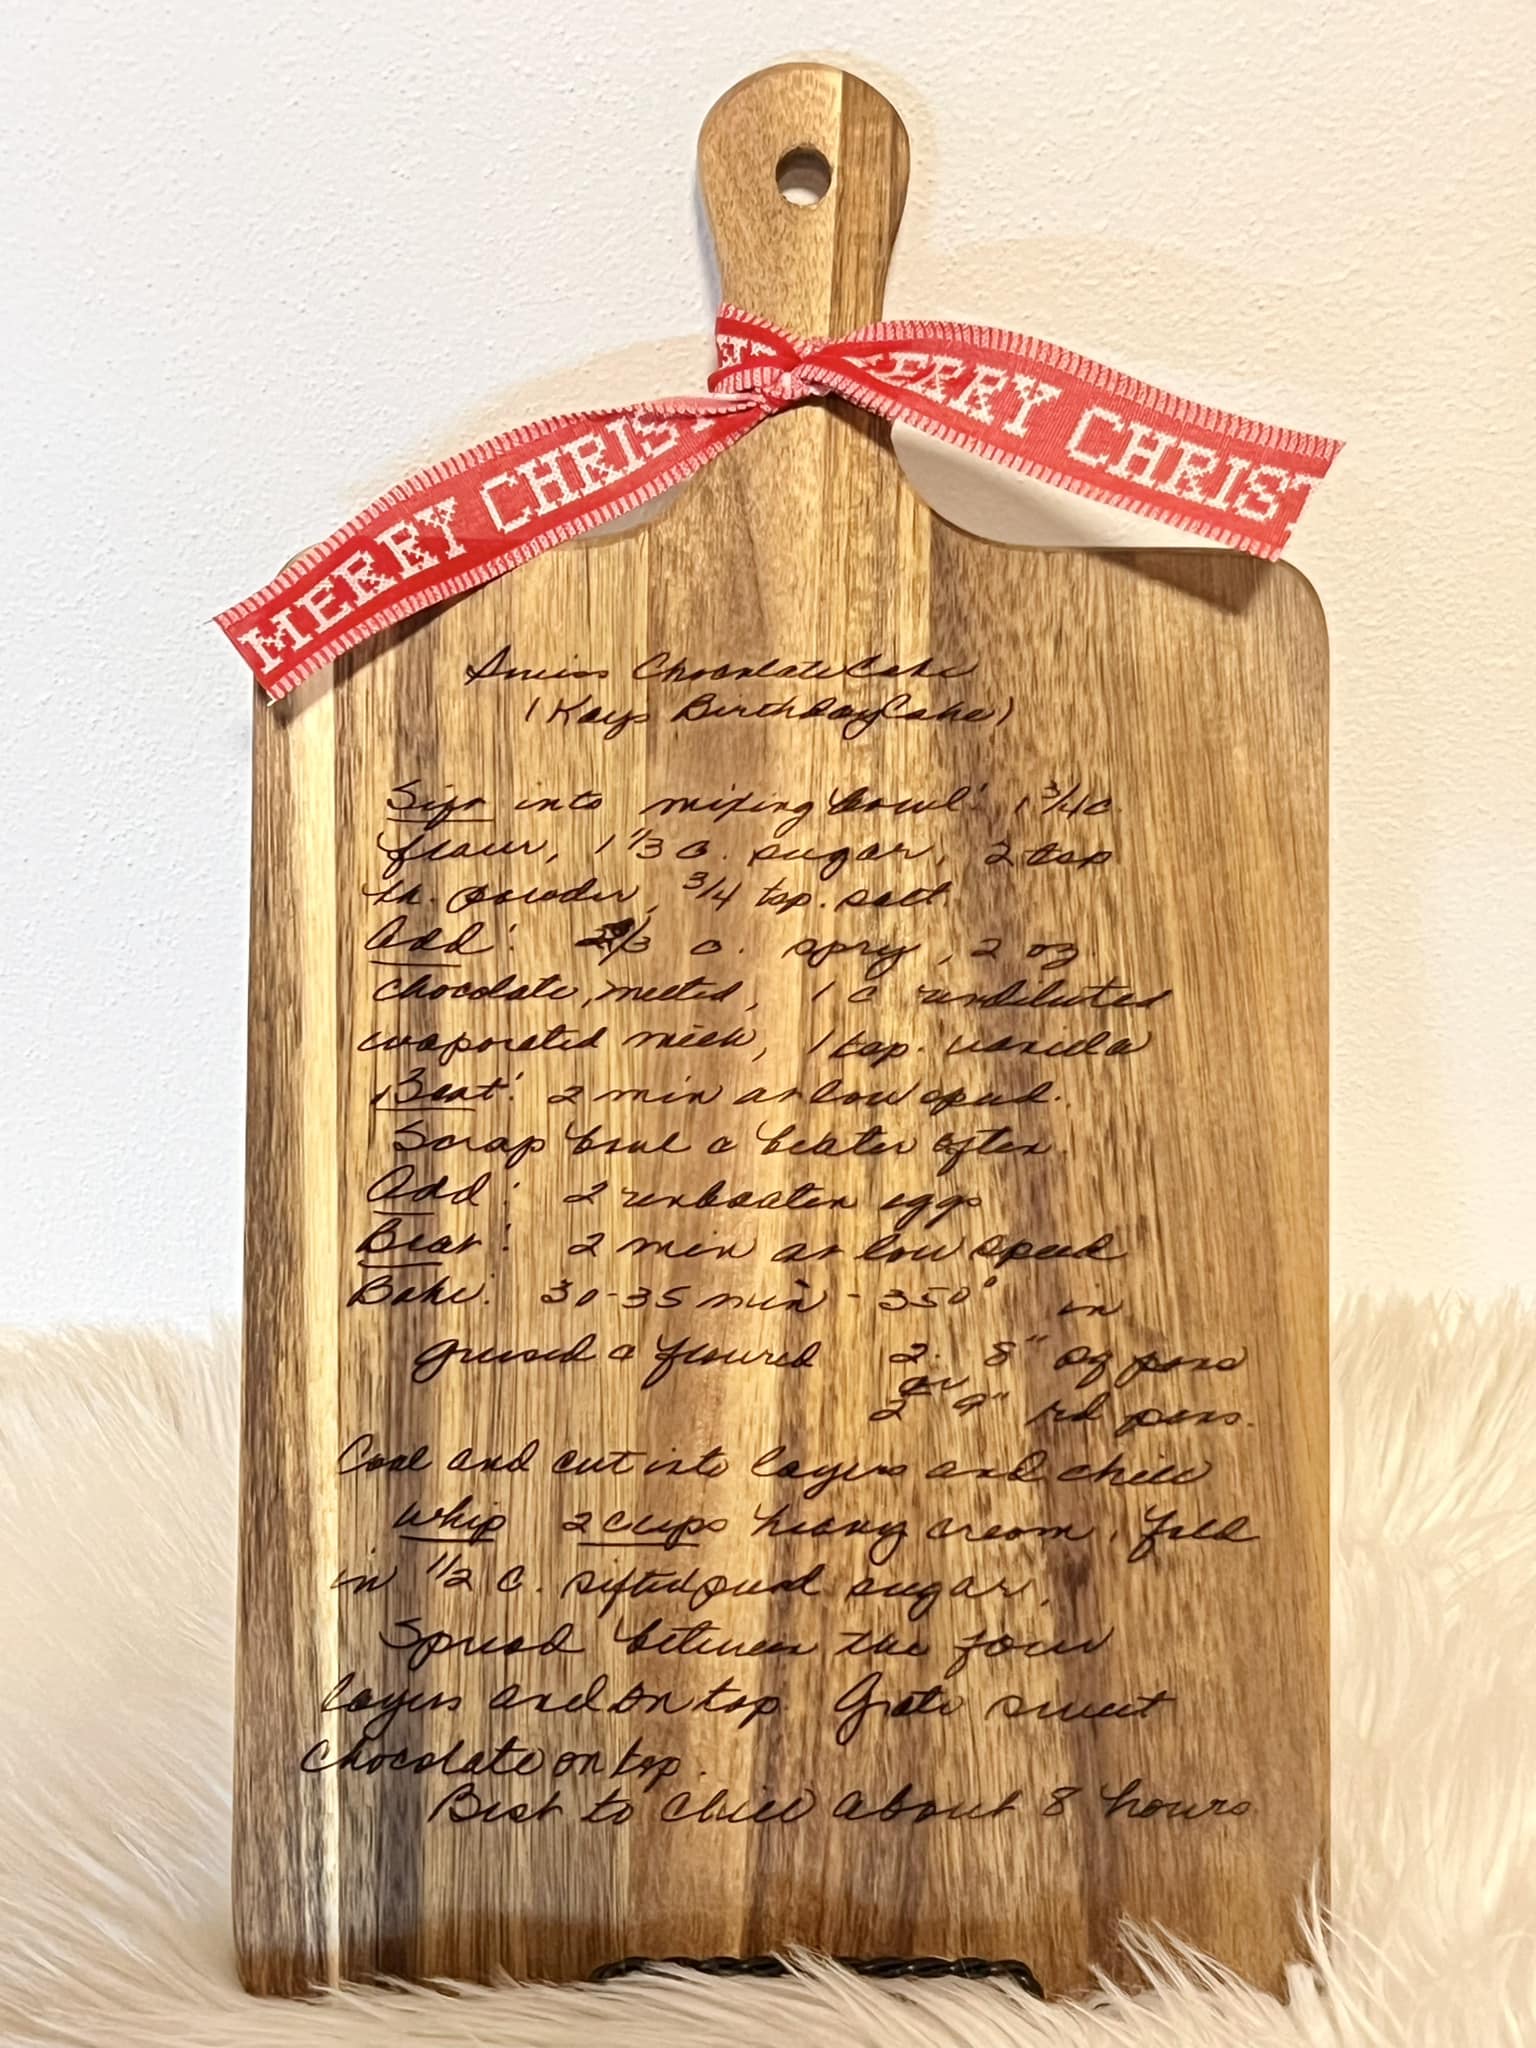 MERRY CHRIST
ERRY CHRIST
Swiss Chocolate Cake
(Kays Birthday Cake)
Sift into mixing bowl: 1 3/4 c
flour, 1 1/3 c. sugar, 2 tsp
powder, 3/4 tsp. salt.
Add: /3 c. spry, 2 oz.
chocolate, melted, 1 c undiluted
evaporated milk, 1 tsp. vanilla
Beat: 2 min at low speed.
Scrap bowl & beater often.
Add: 2 unbeaten eggs
Beat: 2 min at low speed
Bake: 30-35 min - 350° in
greased & floured 2 8" sq pans
or
2 9" rd pans.
Cool and cut into layers and chill
Whip 2 cups heavy cream, fold
in 1/2 c. sifted powd sugar.
Spread between the four
layers and on top. Grate sweet
chocolate on top.
Best to chill about 8 hours